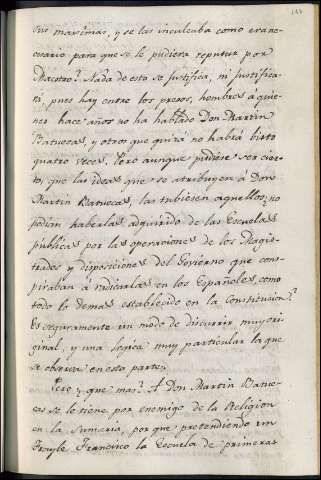 sus maxîmas, y se las inculcaba como era ne-
cesario para que se le pudiera reputar por
Maestro? Nada de esto se justifica, ni justifica-
rá, pues hay entre los presos, hombres á quie-
nes hace años no ha hablado Don Martin
Batuecas, y otros que quizá no habrá visto
quatro veces. Pero aunque pudiese ser cier-
to, que las ideas que se atribuyen á Don
Martin Batuecas, las tubiesen aquellos, no
podian haberlas adquirido de las Escuelas
públicas por las operaciones de los Magis-
trados y disposiciones del Govierno que cons-
piraban á radicarlas en los Españoles, como
todo lo demas establecido en la Constitucion?
Es seguramente un modo de discurrir muy ori-
ginal, y una logica muy particular la que
se observa en esta parte.
Pero ¿que mas? A Don Martin Batue-
cas se le tiene por enemigo de la Religion
en la Sumaria, por que pretendiendo un
Frayle Francisco la Escuela de primeras